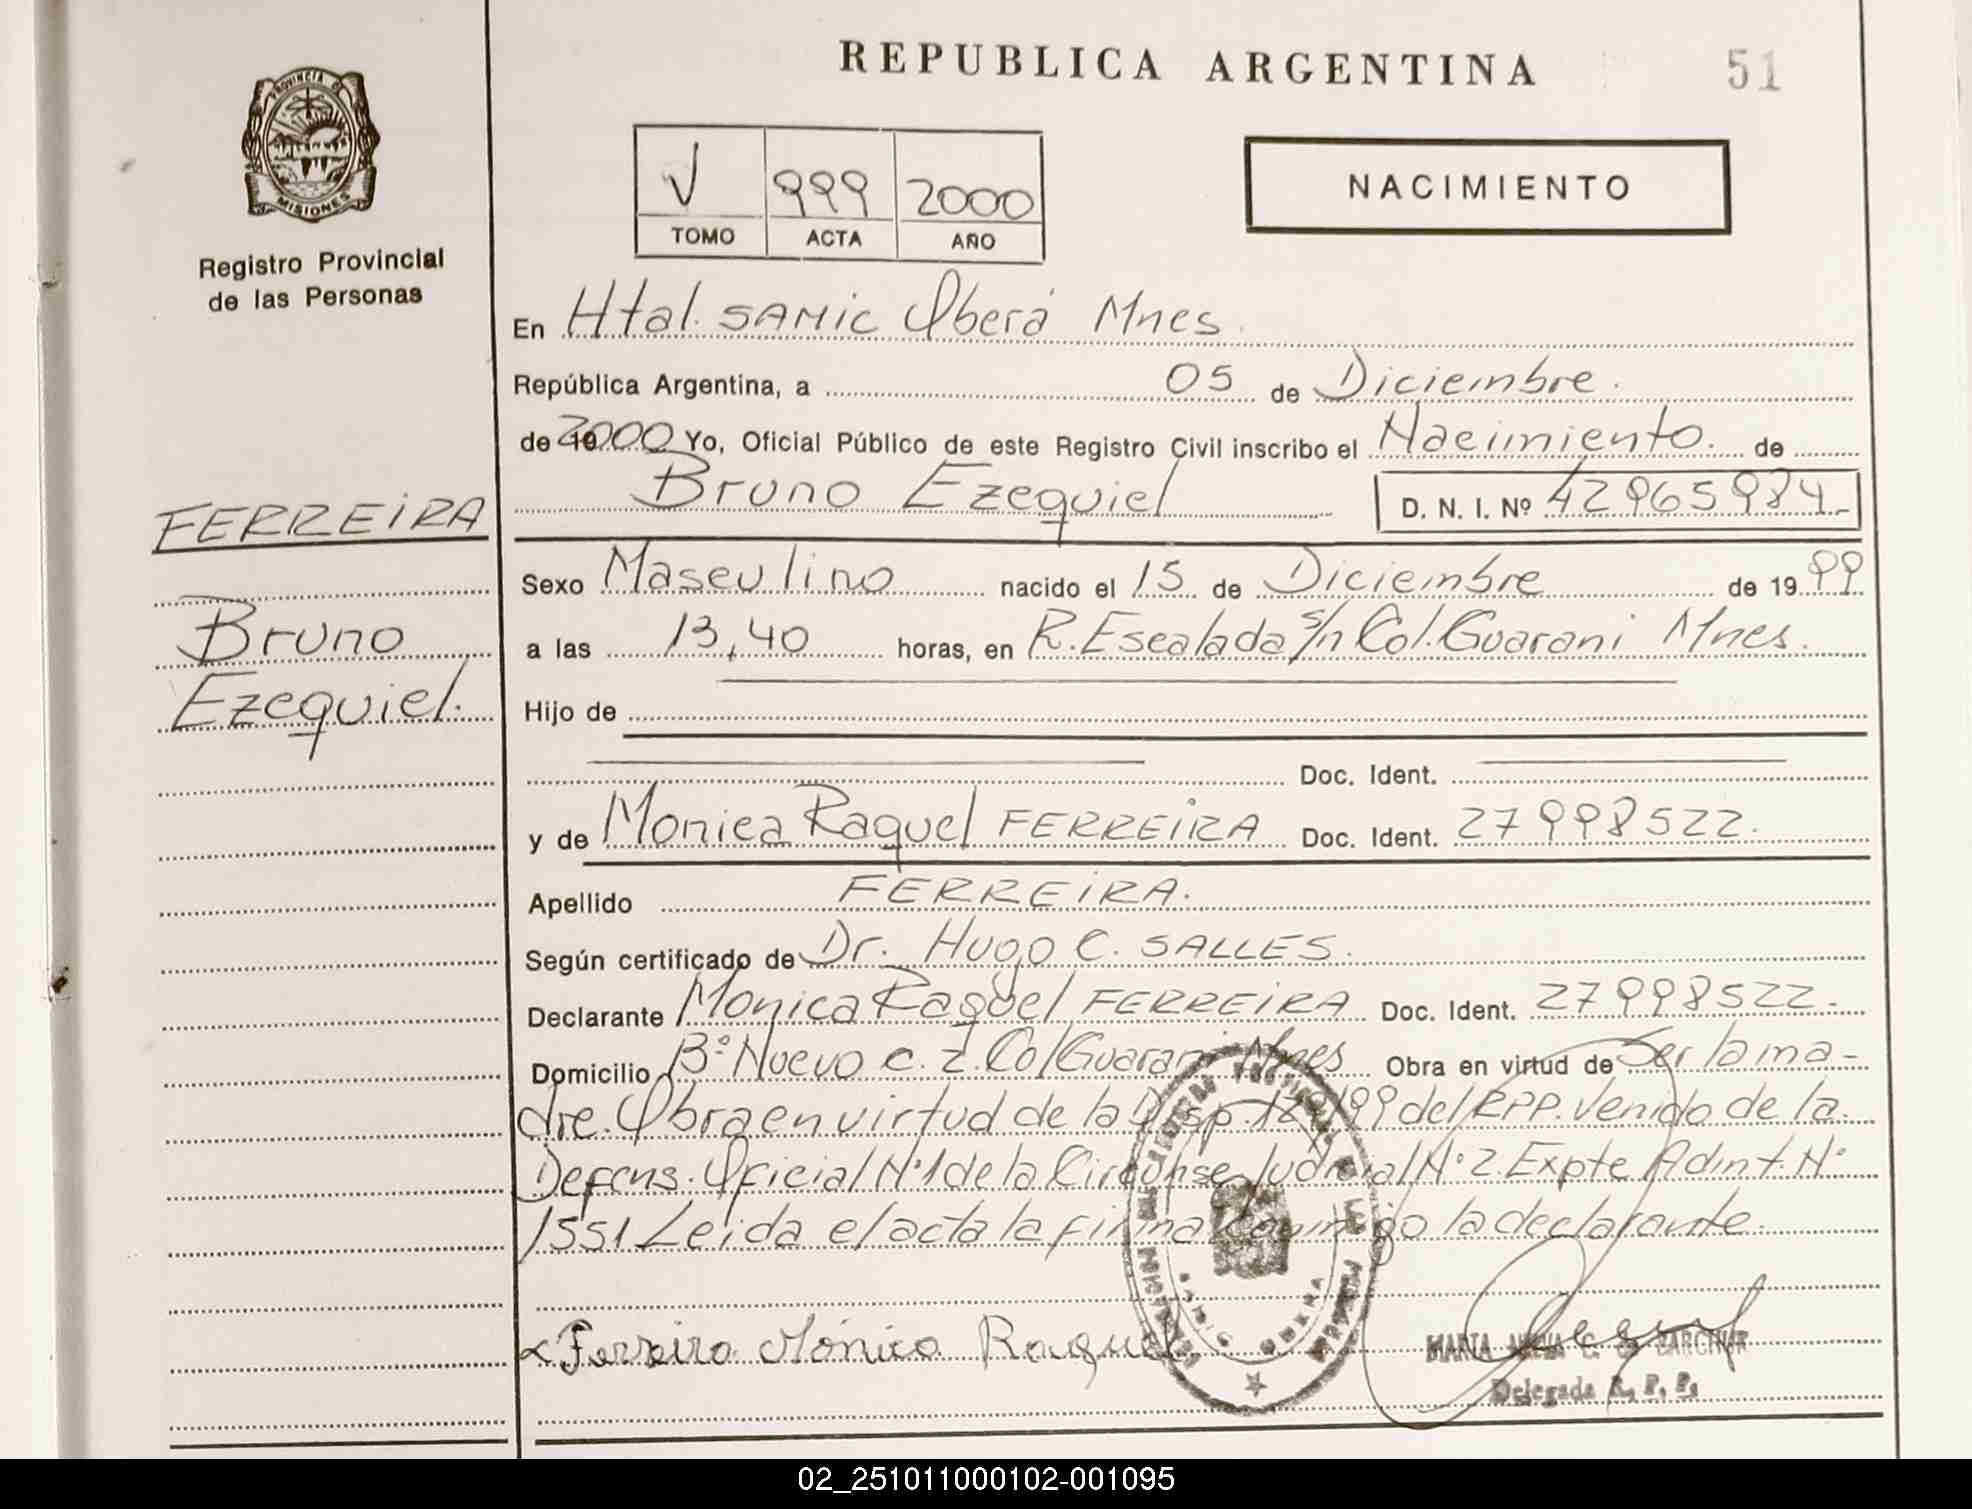 REPUBLICA ARGENTINA
51
PROVINCIA DE
MISIONES
Registro Provincial
de las Personas
V 999 2000
TOMO ACTA AÑO
NACIMIENTO
En Htal. SAMIC Oberá Mnes.
República Argentina, a 05 de Diciembre.
de 2000 Yo, Oficial Público de este Registro Civil inscribo el Nacimiento. de
Bruno Ezequiel D. N. I. Nº 42965984
FERREIRA
Sexo Masculino nacido el 15 de Diciembre de 1999
Bruno
a las 13,40 horas, en R. Escalada s/n Col. Guarani Mnes.
Ezequiel.
Hijo de
Doc. Ident.
y de Monica Raquel FERREIRA Doc. Ident. 27998522.
Apellido FERREIRA.
Según certificado de Dr. Hugo C. SALLES.
Declarante Monica Raquel FERREIRA Doc. Ident. 27998522.
Domicilio Bº Nuevo C. 2. Col Guarani Mnes Obra en virtud de Ser la ma-
dre. Obra en virtud de la Disp. /99 del RPP. Venido de la
Defens. Oficial Nº 1 de la Circunsc. Judicial Nº 2. Expte Admt. Nº
1551 Leida el acta la firma conmigo la declarante.
Ferreira Mónica Raquel
MARIA C. DE
Delegada R. P. P.
02_251011000102-001095